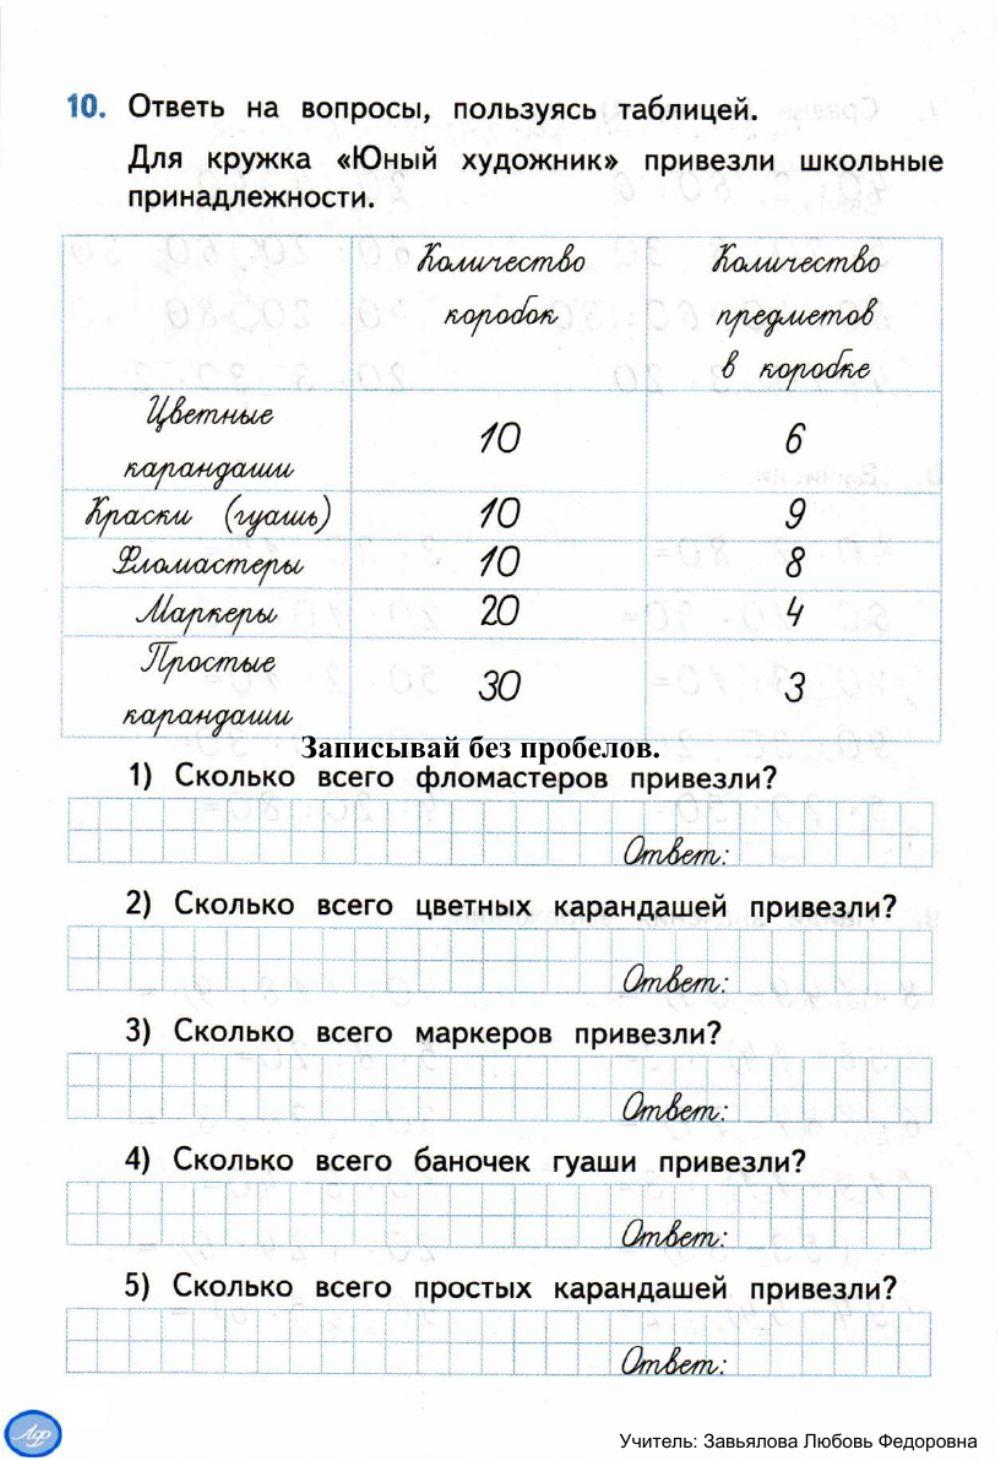 10. Ответь на вопросы, пользуясь таблицей.
Для кружка «Юный художник» привезли школьные
принадлежности.
Количество коробок
Количество предметов в коробке
Цветные карандаши 10 6
Краски (гуашь) 10 9
Фломастеры 10 8
Маркеры 20 4
Простые карандаши 30 3
Записывай без пробелов.
1) Сколько всего фломастеров привезли?
Ответ:
2) Сколько всего цветных карандашей привезли?
Ответ:
3) Сколько всего маркеров привезли?
Ответ:
4) Сколько всего баночек гуаши привезли?
Ответ:
5) Сколько всего простых карандашей привезли?
Ответ:
ЛФ
Учитель: Завьялова Любовь Федоровна